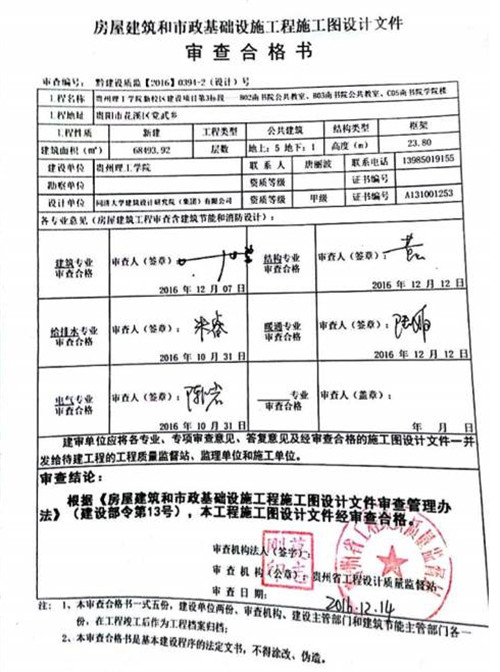 房屋建筑和市政基础设施工程施工图设计文件
审查合格书
审查编号: 黔建设质监【2016】0394-2（设计）号
工程名称 贵州理工学院新校区建设项目第3标段——B02南书院公共教室、B03南书院公共教室、C05南书院学院楼
工程地址 贵阳市花溪区党武乡
工程性质 新建 工程类型 公共建筑 结构类型 框架
建筑面积（㎡） 68493.92 层数 地上: 5 地下: 1 高度（m） 23.80
建设单位 贵州理工学院 联系人 唐丽波 联系电话 13985019155
勘察单位 资质等级 证书编号
设计单位 同济大学建筑设计研究院（集团）有限公司 资质等级 甲级 证书编号 A131001253
各专业意见（房屋建筑工程审查含建筑节能和消防设计）:
建筑专业审查合格 审查人（签章） 2016 年 12 月 07 日
结构专业审查合格 审查人（签章）: 2016 年 12 月 12 日
给排水专业审查合格 审查人（签章）: 朱睿 2016 年 10 月 31 日
暖通专业审查合格 审查人（签章）: 2016 年 12 月 12 日
电气专业审查合格 审查人（签章）: 2016 年 10 月 31 日
专业审查合格 审查人（盖章）: 年 月 日
建审单位应将各专业、专项审查意见、答复意见及经审查合格的施工图设计文件一并
发给待建工程的工程质量监督站、监理单位和施工单位。
审查结论:
根据《房屋建筑和市政基础设施工程施工图设计文件审查管理办
法》（建设部令第13号），本工程施工图设计文件经审查合格。
审查机构法人（签字）:
审查机构（公章）: 贵州省工程设计质量监督站
审查日期: 2016.12.14
注: 1、本审查合格书一式五份，建设单位两份、审查机构、建设主管部门和建筑节能主管部门各一
份，在工程竣工后作为工程档案归档;
2、本审查合格书是基本建设程序的法定文书，不得涂改、伪造。